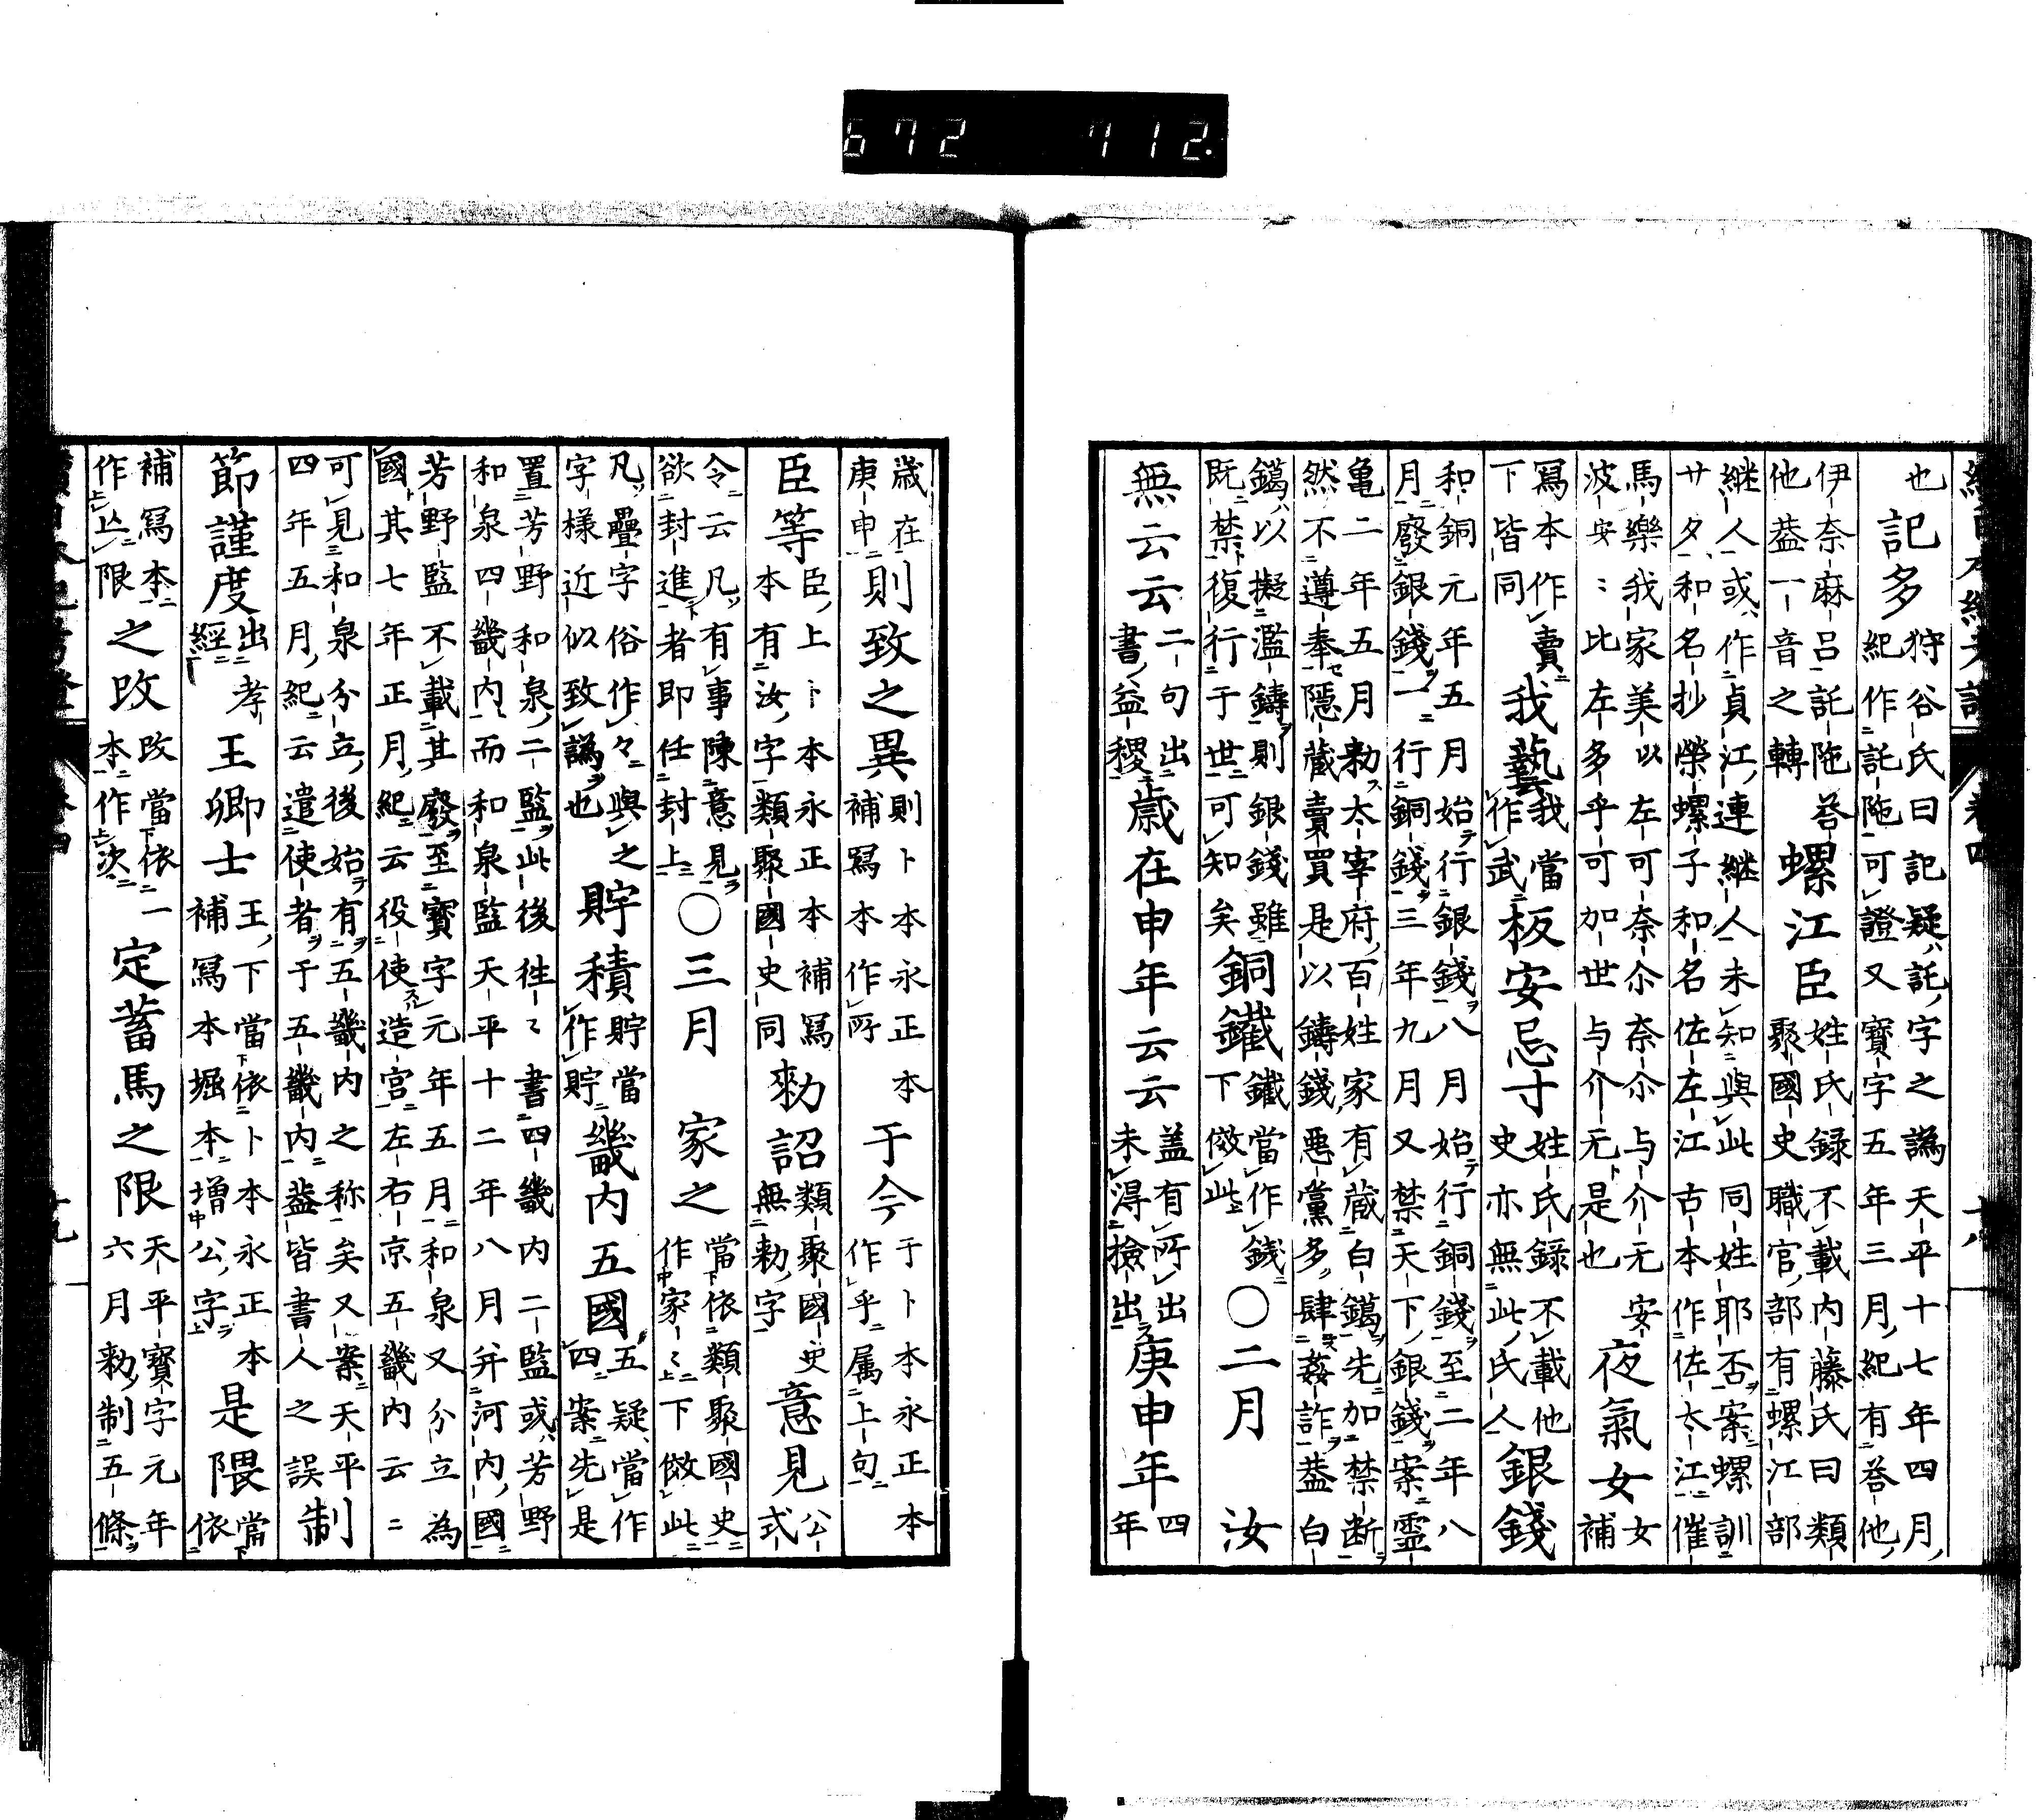 672 712.
也 記多 狩谷氏曰記疑託字之譌天平十七年四月
紀作託陁可證又寶字五年三月紀有荅他
伊奈麻呂託陁荅
他葢一音之轉 螺江臣 姓氏録不載内藤氏曰類
聚國史職官部有螺江部
継人或作貞江連継人未知與此同姓耶否案螺訓
サタ和名抄榮螺子和名佐左江古本作佐太江催
馬樂我家美以左可奈尓奈尓与介无安
波安〻比左多乎可可加世与介元是也 夜氣女 女
補
寫本作賣
下皆同 我藝 我當
作武 板安忌寸 姓氏録不載他
史亦無此氏人 銀錢
和銅元年五月始行銀錢八月始行銅錢至二年八
月廢銀錢一行銅錢三年九月又禁天下銀錢案霊
亀二年五月勅太宰府百姓家有蔵白鑞先加禁断
然不遵奉隱蔵賣買是以鑄錢惡黨多肆姦詐葢白
鑞以擬濫鑄則銀錢雖
既禁復行于世可知矣 銅鐵 鐵當作銭
下倣此 〇二月 汝
無云云 二句出
書益稷 歳在申年云云 盖有所出
未淂撿出 庚申年 四
年
歳在
庚申 則致之異 則卜本永正本
補寫本作所 于今 于卜本永正本
作乎属上句
臣等 臣上卜本永正本補寫
本有汝字類聚國史同 勅詔 類聚國史
無勅字 意見 公
式
令云凡有事陳意見
欲封進者即任封上 〇三月 家之 當依類聚國史
作家〻下倣此
凡疊字俗作々與之
字様近似致譌也 貯積 貯當
作貯 畿内五國 五疑當作
四案先是
置芳野和泉二監此後徃〻書四畿内二監或芳野
和泉四畿内而和泉監天平十二年八月并河内國
芳野監不載其廢至寶字元年五月和泉又分立為
國其七年正月紀云役使造宫左右京五畿内云〻
可見和泉分立後始有五畿内之称矣又案天平
四年五月紀云遣使者于五畿内葢皆書人之誤 制
節謹度 出孝
經 王卿士 王下當依卜本永正本
補寫本堀本増公字 是隈 當
依
補寫本
作㠯限 之改 改當依一
本作次 定蓄馬之限 天平寶字元年
六月勅制五條